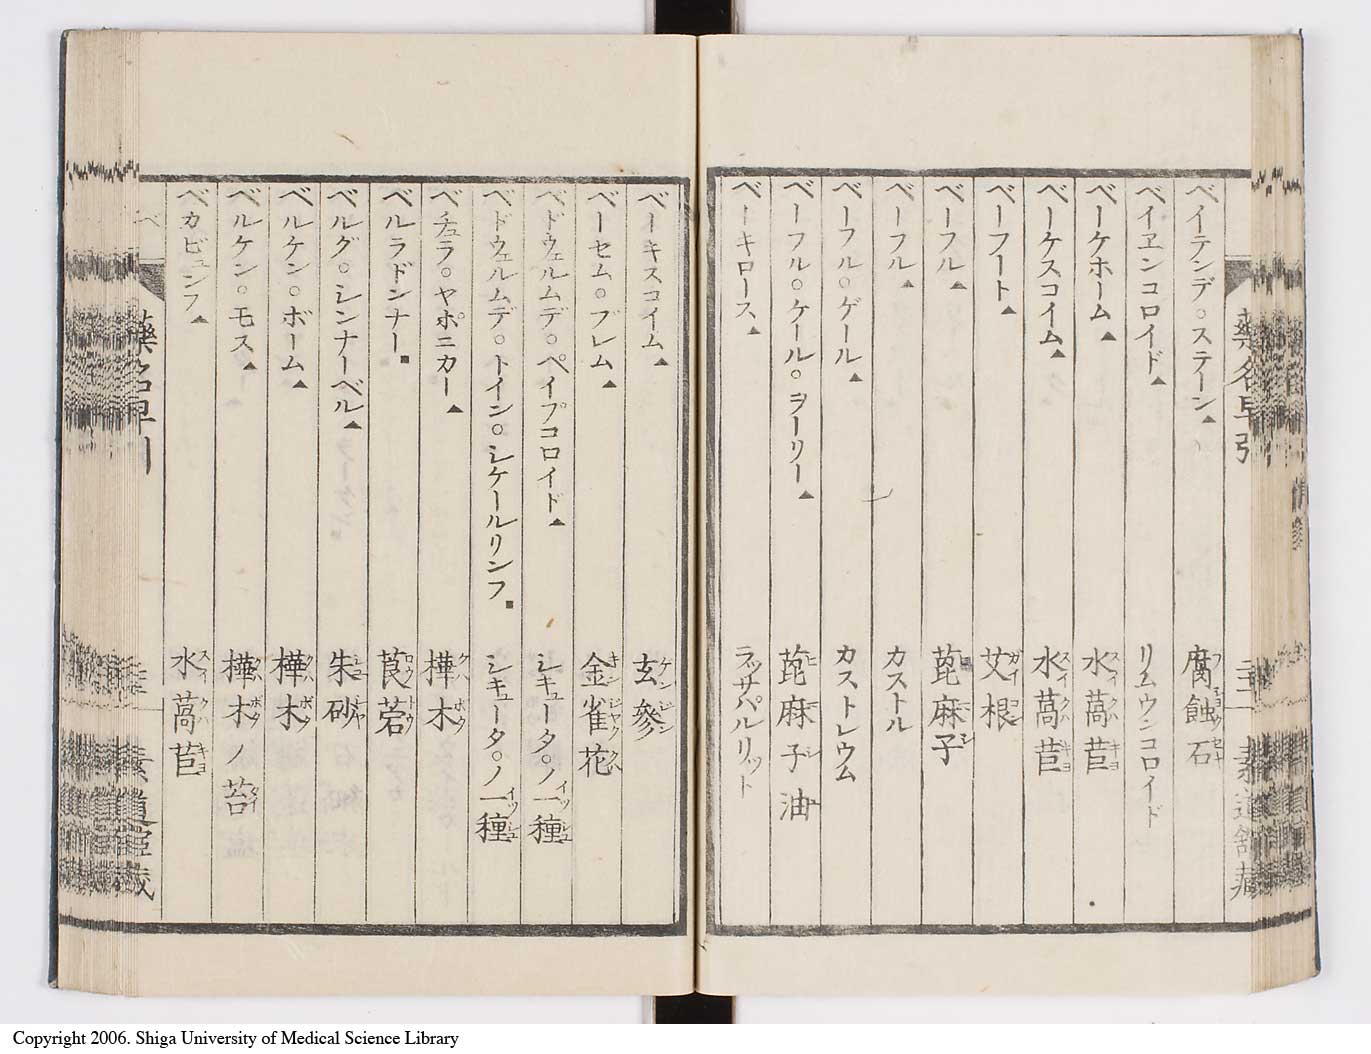 藥名早引
ベイテンデ。ステーン▲ 腐蝕石
ベイヱンコロイド▲ リムウンコロイド
ベーケホーム▲ 水萵苣
ベーケスコイム▲ 水萵苣
ベーフート▲ 艾根
ベーフル▲ 蓖麻子
ベーフル▲ カストル
ベーフル。ゲール▲ カストレウム
ベーフル。ケール。ヲーリー▲ 蓖麻子油
ベーキロース▲ ラッサパルリット
ベーキスコイム▲ 玄參
ベーセム。ブレム▲ 金雀花
ベドウェルムデ。ペイプコロイド▲ シキュータ。ノ一種
ベドウェルムデ。トイン。シケールリンフ■ シキュータ。ノ一種
ベチュラ。ヤポニカー▲ 樺木
ベルラドンナー■ 莨菪
ベルグ。シンナーベル▲ 朱砂
ベルケン。ボーム▲ 樺木
ベルケン。モス▲ 樺木ノ苔
ベカビュンフ▲ 水萵苣
藥名早引
Copyright 2006. Shiga University of Medical Science Library